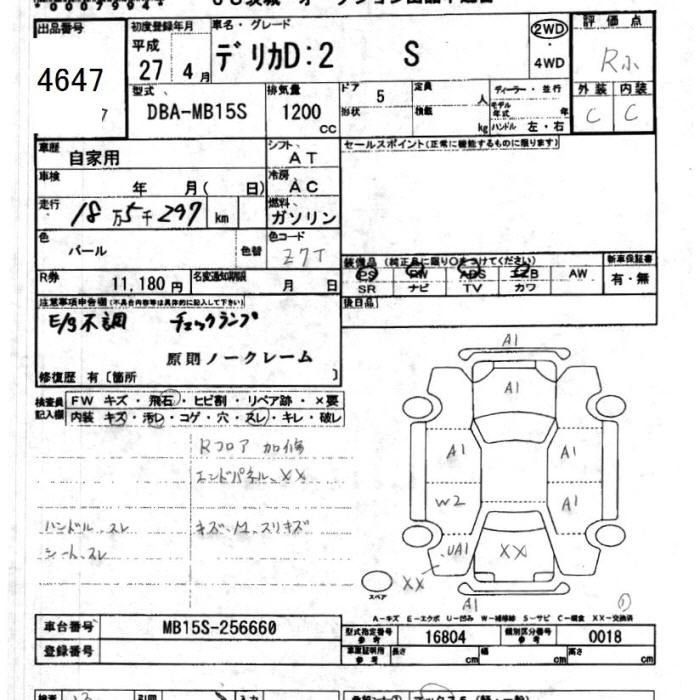 出品番号
4647
7
初度登録年月
平成
27 4 月
車名・グレード
デリカD:2 S
2WD
・
4WD
評価点
R小
外装 内装
C C
型式
DBA-MB15S
排気量
1200
cc
ドア 5
形状
定員
人
積載
kg
ディーラー・並行
モデル年式
年
ハンドル 左・右
車歴
自家用
シフト
AT
セールスポイント(正常に機能するものに限ります)
車検
年 月( 日)
冷房
AC
走行
18万5千297 km
燃料
ガソリン
色
パール
色替
色コード
Z7T
装備品 (純正品に限り○をつけてください)
PS PW ABS エB AW
SR ナビ TV カワ
新車保証書
有・無
R券
11,180 円
名変通知期限
月 日
後日品
注意事項申告欄(不具合内容等は具体的に記入して下さい)
E/g不調 チェックランプ
原則ノークレーム
修復歴 有〔箇所 〕
検査員記入欄
FW キズ・飛石・ヒビ割・リペア跡・×要
内装 キズ・汚レ・コゲ・穴・スレ・キレ・破レ
Rフロア 加修
エンドパネル XX
ハンドル スレ
キズ・M スリキズ
シート スレ
A1
A1
A1
A1
W2
A1
UA1
XX
XX
スペア
A1
①
A-キズ E-エクボ U-凹み W-補修跡 S-サビ C-腐食 XX-交換済
車台番号
MB15S-256660
型式指定番号 参考
16804
類別区分番号 参考
0018
登録番号
車庫証明用 参考
長さ cm
幅 cm
高さ cm